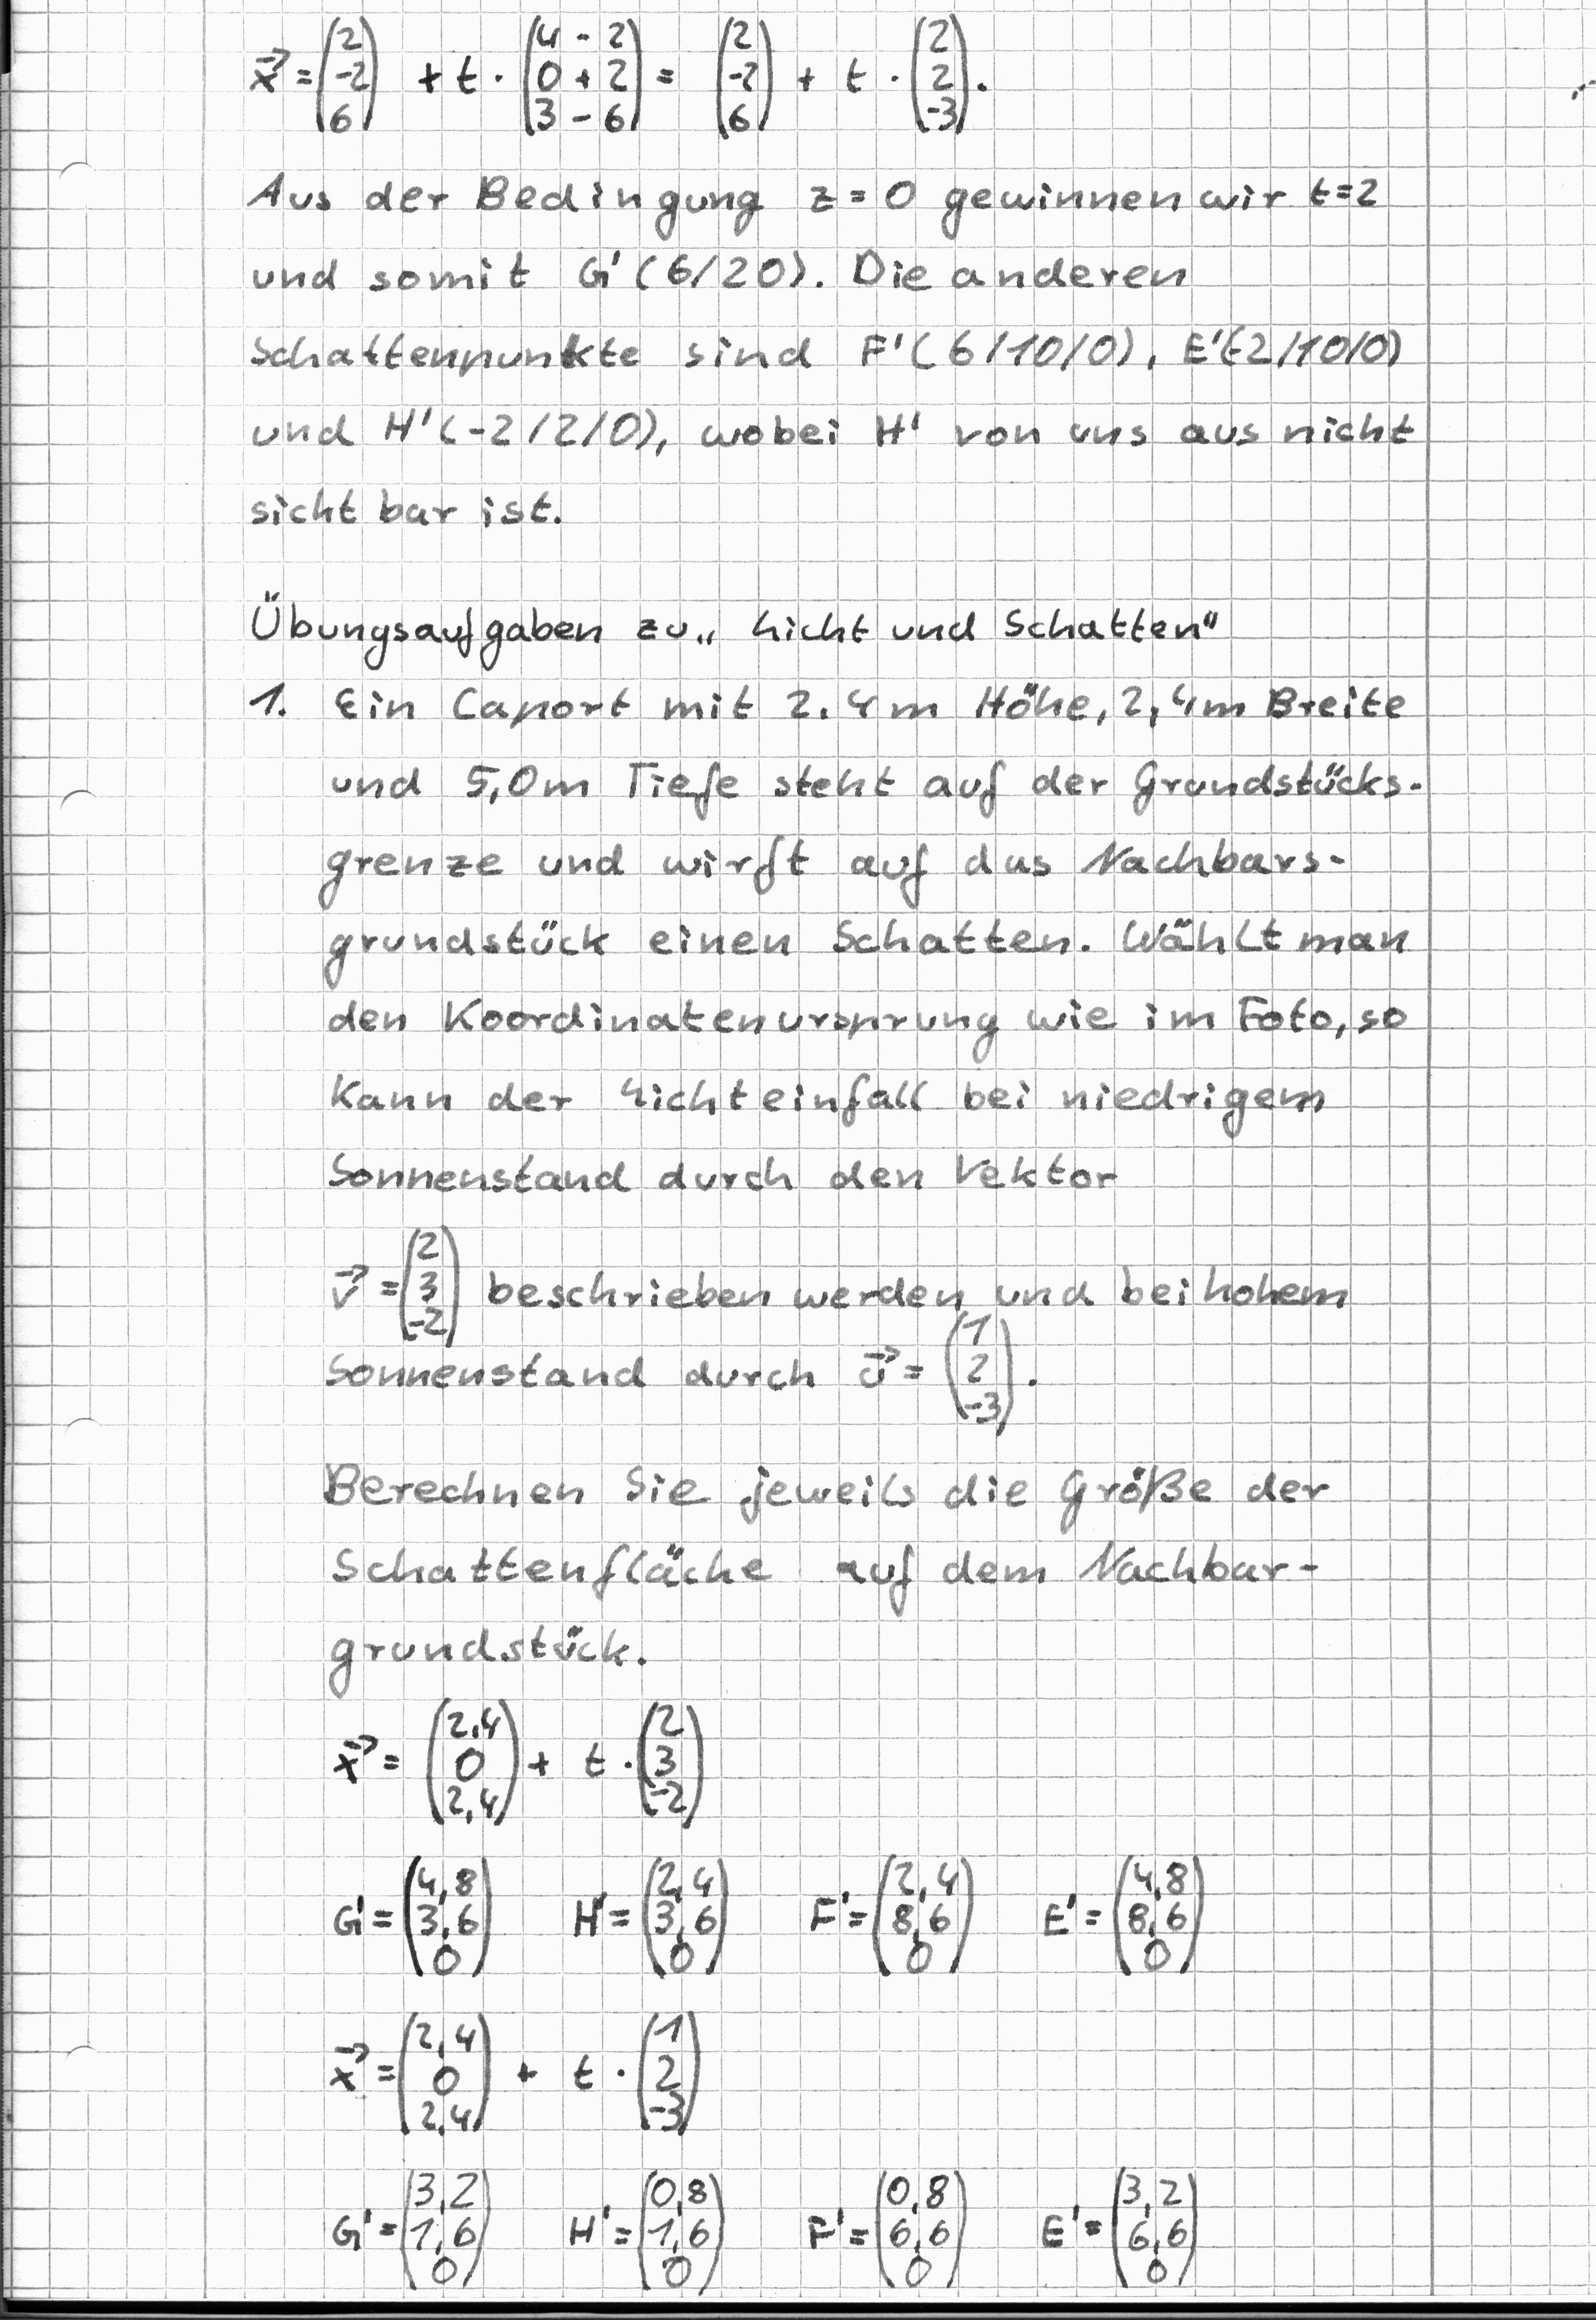 x⃗ = (2 / -2 / 6) + t · (4 - 2 / 0 + 2 / 3 - 6) = (2 / -2 / 6) + t · (2 / 2 / -3).
Aus der Bedingung z = 0 gewinnen wir t=2
und somit G' (6/20). Die anderen
Schattenpunkte sind F' (6/10/0), E'(-2/10/0)
und H' (-2/2/0), wobei H' von uns aus nicht
sichtbar ist.
Übungsaufgaben zu „Licht und Schatten"
1. Ein Caport mit 2.4m Höhe, 2,4m Breite
und 5,0m Tiefe steht auf der Grundstücks-
grenze und wirft auf das Nachbars-
grundstück einen Schatten. Wählt man
den Koordinatenursprung wie im Foto, so
kann der Lichteinfall bei niedrigem
Sonnenstand durch den Vektor
v⃗ = (2 / 3 / -2) beschrieben werden und bei hohem
Sonnenstand durch u⃗ = (1 / 2 / -3).
Berechnen Sie jeweils die Größe der
Schattenfläche auf dem Nachbar-
grundstück.
x⃗ = (2,4 / 0 / 2,4) + t · (2 / 3 / -2)
G' = (4,8 / 3,6 / 0) H' = (2,4 / 3,6 / 0) F' = (2,4 / 8,6 / 0) E' = (4,8 / 8,6 / 0)
x⃗ = (2,4 / 0 / 2,4) + t · (1 / 2 / -3)
G' = (3,2 / 1,6 / 0) H' = (0,8 / 1,6 / 0) F' = (0,8 / 6,6 / 0) E' = (3,2 / 6,6 / 0)